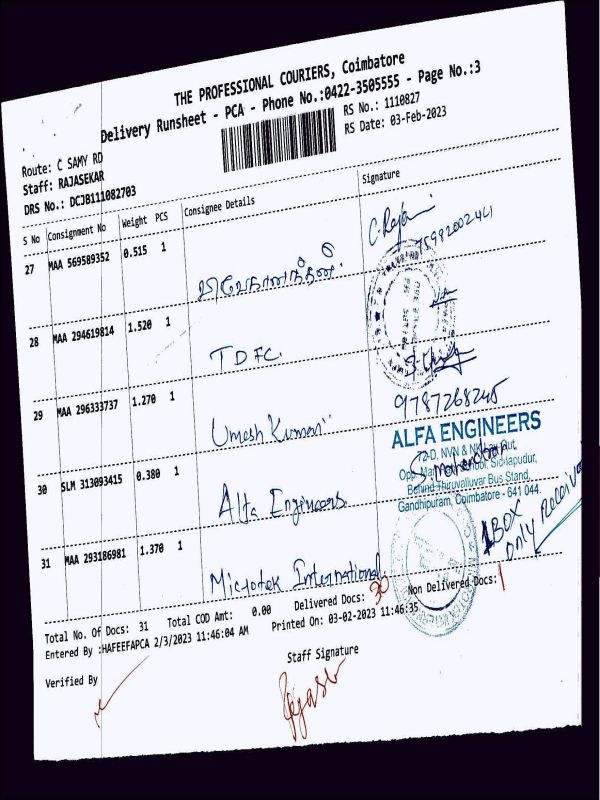 THE PROFESSIONAL COURIERS, Coimbatore
Delivery Runsheet - PCA - Phone No.:0422-3505555 - Page No.:3
RS No.: 1110827
RS Date: 03-Feb-2023
Route: C SAMY RD
Staff: RAJASEKAR
DRS No.: DCJB111082703
S No Consignment No Weight PCS Consignee Details Signature
27 MAA 569589352 0.515 1
28 MAA 294619814 1.520 1 TDFC
29 MAA 296333737 1.270 1 Umesh Kumari
9787268245
30 SLM 313093415 0.380 1 Alfa Engineers
ALFA ENGINEERS
72-D, NVN &
Behind Thiruvalluvar Bus Stand,
Gandhipuram, Coimbatore - 641 044.
S. Mahendran
31 MAA 293186981 1.370 1 Microtek International
1 BOX
only Received
Total No. Of Docs: 31 Total COD Amt: 0.00 Delivered Docs: 30 Non Delivered Docs: 1
Entered By :HAFEEFAPCA 2/3/2023 11:46:04 AM Printed On: 03-02-2023 11:46:35
Verified By Staff Signature